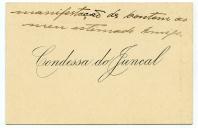 manifestação de hontem ao
meu estimado Amigo
Condessa do Juncal